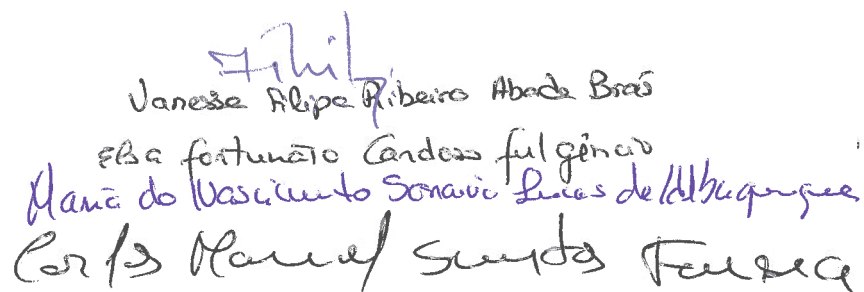 Vanessa Filipa Ribeiro Abade Brás
Elsa Fortunato Cardoso Fulgêncio
Maria do Nascimento Lucas de Albuquerque
Carlos Manuel Santos Fonseca